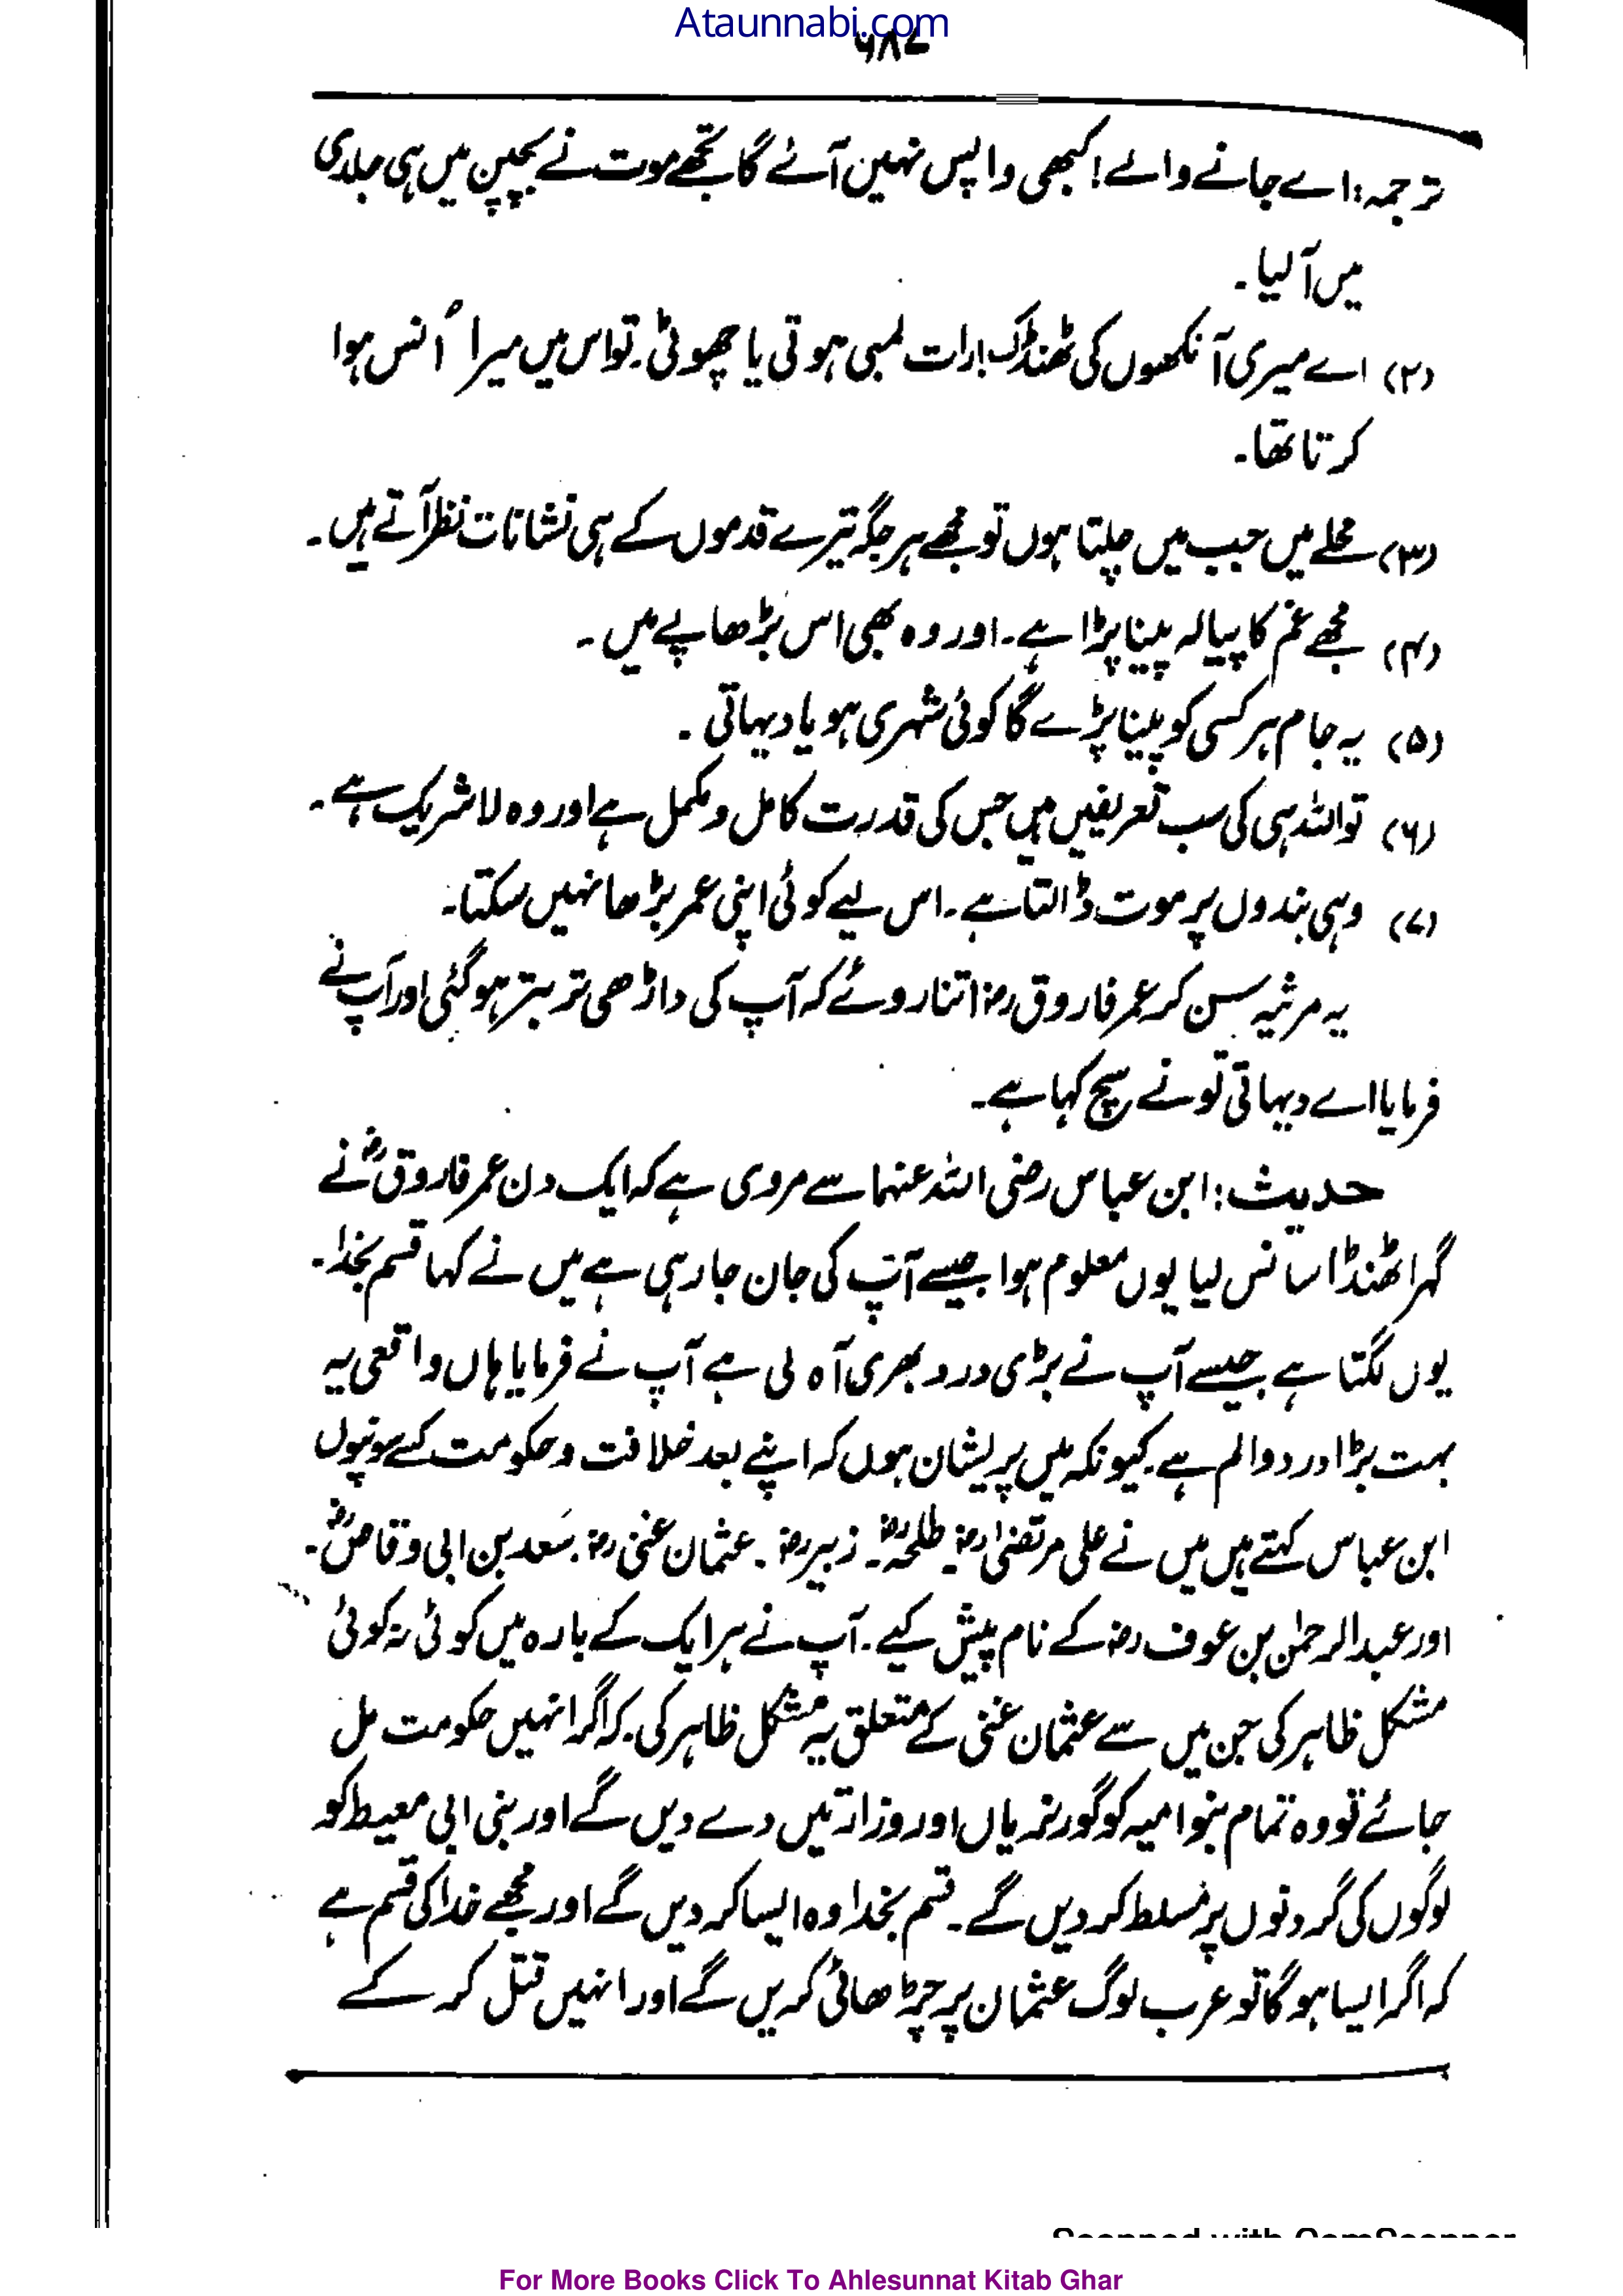 Ataunnabi.com
۶۸۷
ترجمہ: اے جانے والے! کبھی واپس نہیں آئے گا تجھے موت نے بچپن میں ہی جلدی
میں آ لیا۔
(۲) اے میری آنکھوں کی ٹھنڈک! رات لمبی ہوتی یا چھوٹی۔ تو اس میں میرا اُنس ہوا
کرتا تھا۔
(۳) محلے میں جب میں چلتا ہوں تو مجھے ہر جگہ تیرے قدموں کے ہی نشانات نظر آتے ہیں۔
(۴) مجھے غم کا پیالہ پینا پڑا ہے۔ اور وہ بھی اس بڑھاپے میں۔
(۵) یہ جام ہر کسی کو پینا پڑے گا کوئی شہری ہو یا دیہاتی۔
(۶) تو اللہ ہی کی سب تعریفیں ہیں جس کی قدرت کامل و مکمل ہے اور وہ لا شریک ہے۔
(۷) وہی بندوں پر موت ڈالتا ہے۔ اس لیے کوئی اپنی عمر بڑھا نہیں سکتا۔
یہ مرثیہ سن کر عمر فاروق رضؓ اتنا روئے کہ آپ کی داڑھی تر بتر ہو گئی اور آپ نے
فرمایا اے دیہاتی تو نے سچ کہا ہے۔
حدیث: ابن عباس رضی اللہ عنہما سے مروی ہے کہ ایک دن عمر فاروقؓ نے
گہرا ٹھنڈا سانس لیا یوں معلوم ہوا جیسے آپ کی جان جا رہی ہے میں نے کہا قسم بخدا۔
یوں لگتا ہے جیسے آپ نے بڑی درد بھری آہ لی ہے آپ نے فرمایا ہاں واقعی یہ
بہت بڑا درد و الم ہے۔ کیونکہ میں پریشان ہوں کہ اپنے بعد خلافت و حکومت کسے سونپوں
ابن عباس کہتے ہیں میں نے علی مرتضیٰ رضؓ طلحہؓ۔ زبیر رضؓ۔ عثمان غنی رضؓ۔ سَعد بن ابی وقاصؓ۔
اور عبدالرحمٰن بن عوف رضؓ کے نام پیش کیے۔ آپ نے ہر ایک کے بارہ میں کوئی نہ کوئی
مشکل ظاہر کی جن میں سے عثمان غنی کے متعلق یہ مشکل ظاہر کی۔ کہ اگر انہیں حکومت مل
جائے تو وہ تمام بنو امیہ کو گورنریاں اور وزارتیں دے دیں گے اور بنی ابی معیط کو
لوگوں کی گردنوں پر مُسلط کر دیں گے۔ قسم بخدا وہ ایسا کر دیں گے اور مجھے خدا کی قسم ہے
کہ اگر ایسا ہو گا تو عرب لوگ عثمان پر چڑھائی کریں گے اور انہیں قتل کر کے
Scanned with CamScanner
For More Books Click To Ahlesunnat Kitab Ghar